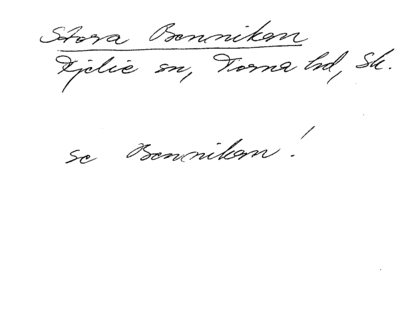 Stora Bonnikan
Fjelie sn, Torna hd, Sk.
se Bonnikan!